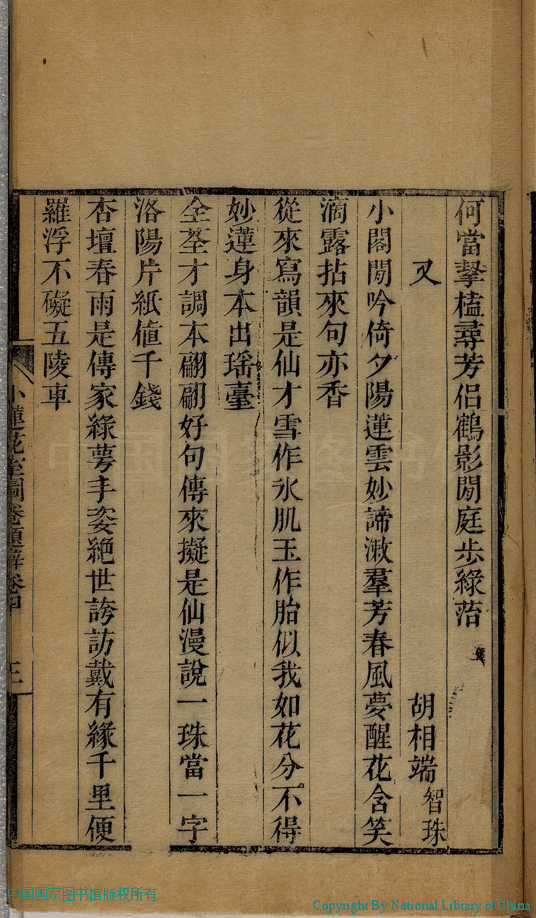 何當挈榼尋芳侶鶴影閒庭步綠莎
又
胡相端智珠
小閣閒吟倚夕陽蓮雲妙諦漱羣芳春風夢醒花含笑
滴露拈來句亦香
從來寫韻是仙才雪作氷肌玉作胎似我如花分不得
妙蓮身本出瑶臺
全荃才調本翩翩好句傳來擬是仙漫說一珠當一字
洛陽片紙值千錢
杏壇春雨是傳家綠萼手姿絕世誇訪戴有緣千里便
羅浮不礙五陵車
小蓮花室圖卷題辭卷
三
中国国家图书馆版权所有
Copyright By National Library of China